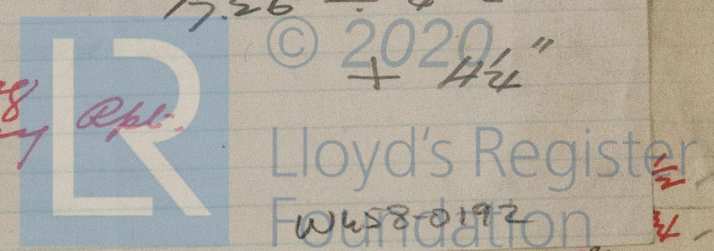 17.26
© 2020
+ 4¼"
Rpt.
LR
Lloyd's Register
Foundation
W458-0192